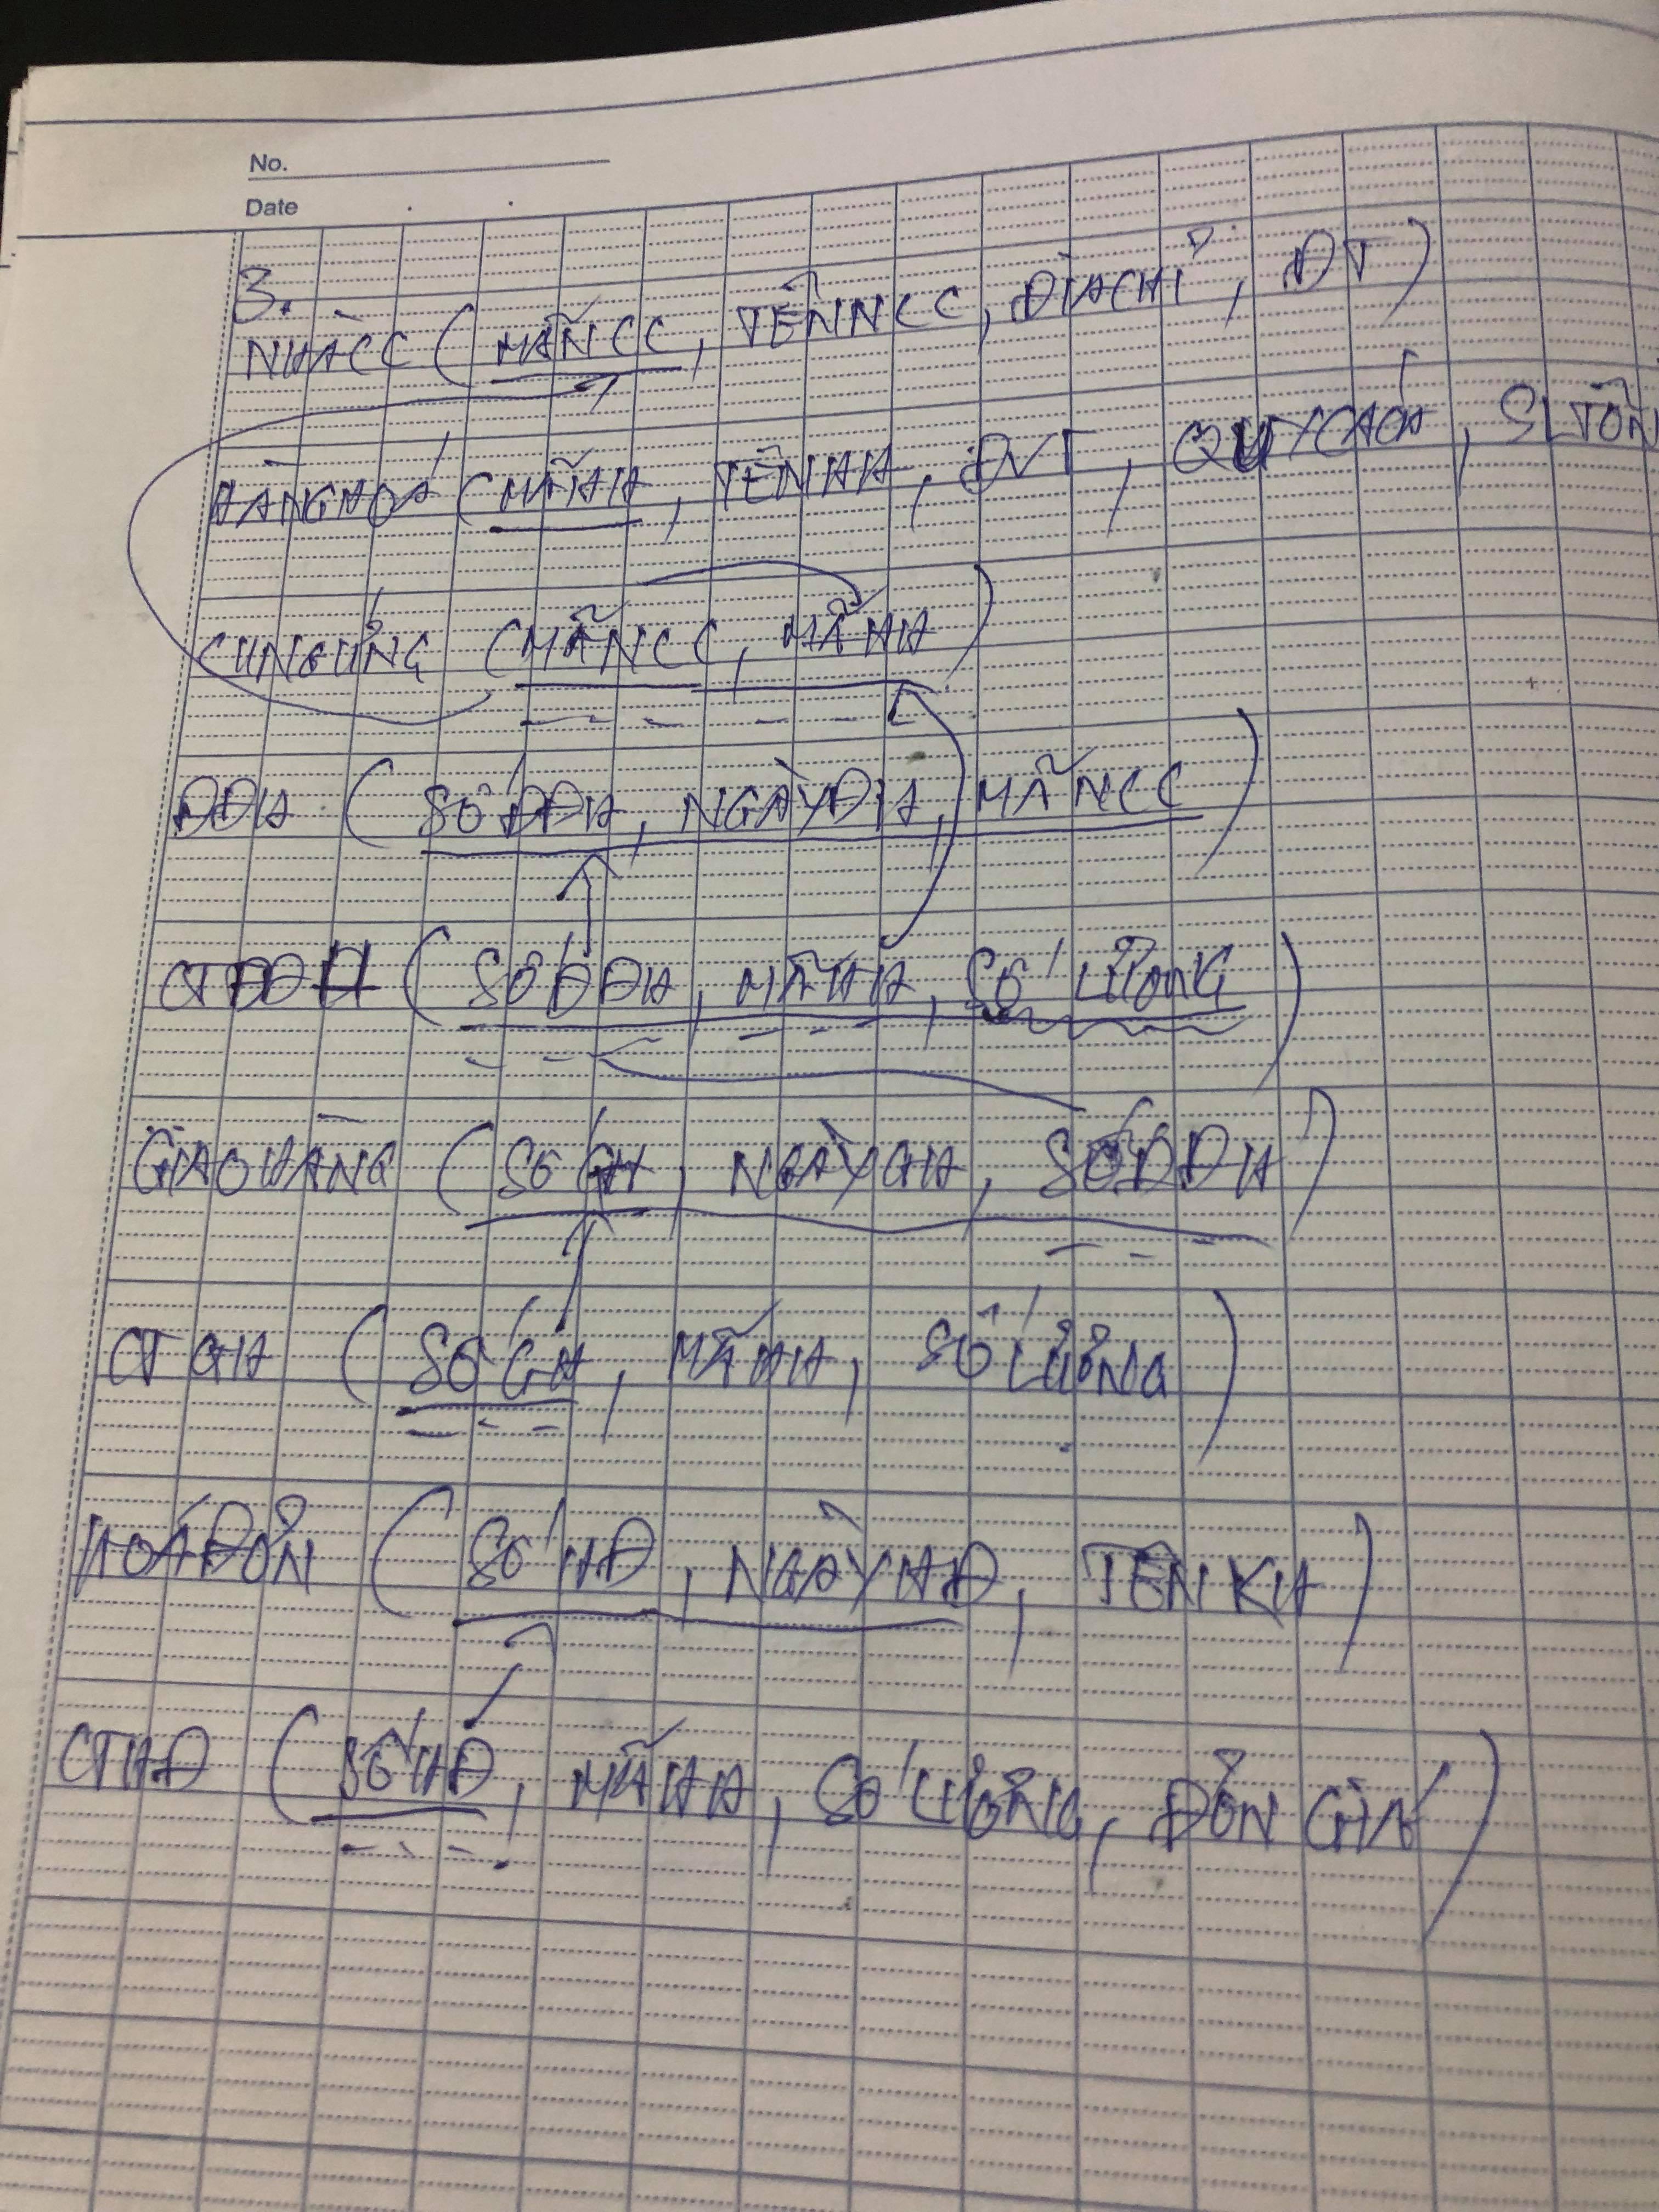 No.
Date
3.
NHÀCC (MÃNCC, TÊNNCC, ĐỊACHỈ, ĐT)
HÀNGHOÁ (MÃHH, TÊNHH, ĐVT, QUYCÁCH, SLTỒN
CUNGỨNG (MÃNCC, MÃHH)
ĐĐH (SỐĐĐH, NGÀYĐH, MÃNCC)
CTĐĐH (SỐĐĐH, MÃHH, SỐ LƯỢNG)
GIAOHÀNG (SỐGH, NGÀYGH, SỐĐĐH)
CTGH (SỐGH, MÃHH, SỐ LƯỢNG)
HOÁĐƠN (SỐHĐ, NGÀYHĐ, TÊNKH)
CTHĐ (SỐHĐ, MÃHH, SỐ LƯỢNG, ĐƠN GIÁ)